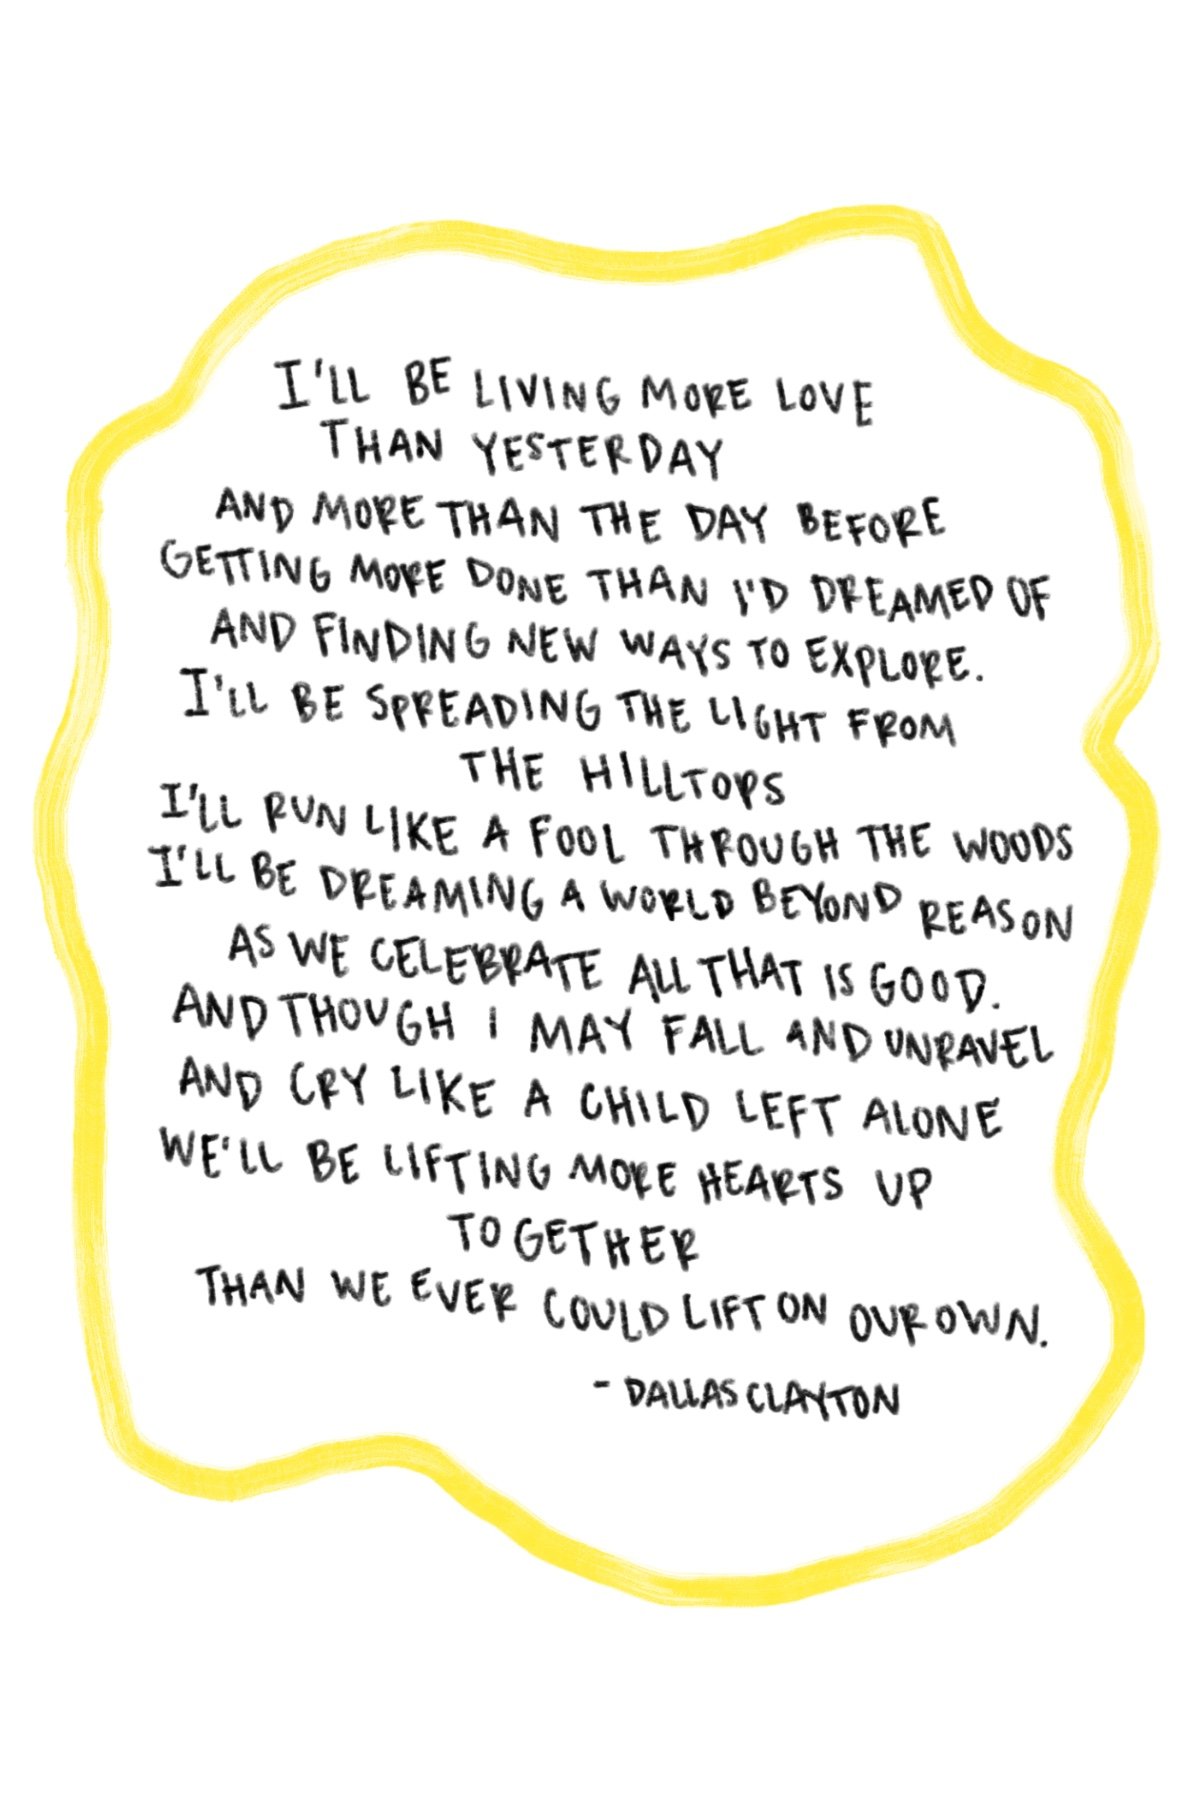 I'LL BE LIVING MORE LOVE
THAN YESTERDAY
AND MORE THAN THE DAY BEFORE
GETTING MORE DONE THAN I'D DREAMED OF
AND FINDING NEW WAYS TO EXPLORE.
I'LL BE SPREADING THE LIGHT FROM
THE HILLTOPS
I'LL RUN LIKE A FOOL THROUGH THE WOODS
I'LL BE DREAMING A WORLD BEYOND REASON
AS WE CELEBRATE ALL THAT IS GOOD.
AND THOUGH I MAY FALL AND UNRAVEL
AND CRY LIKE A CHILD LEFT ALONE
WE'LL BE LIFTING MORE HEARTS UP
TOGETHER
THAN WE EVER COULD LIFT ON OUR OWN.
- DALLAS CLAYTON